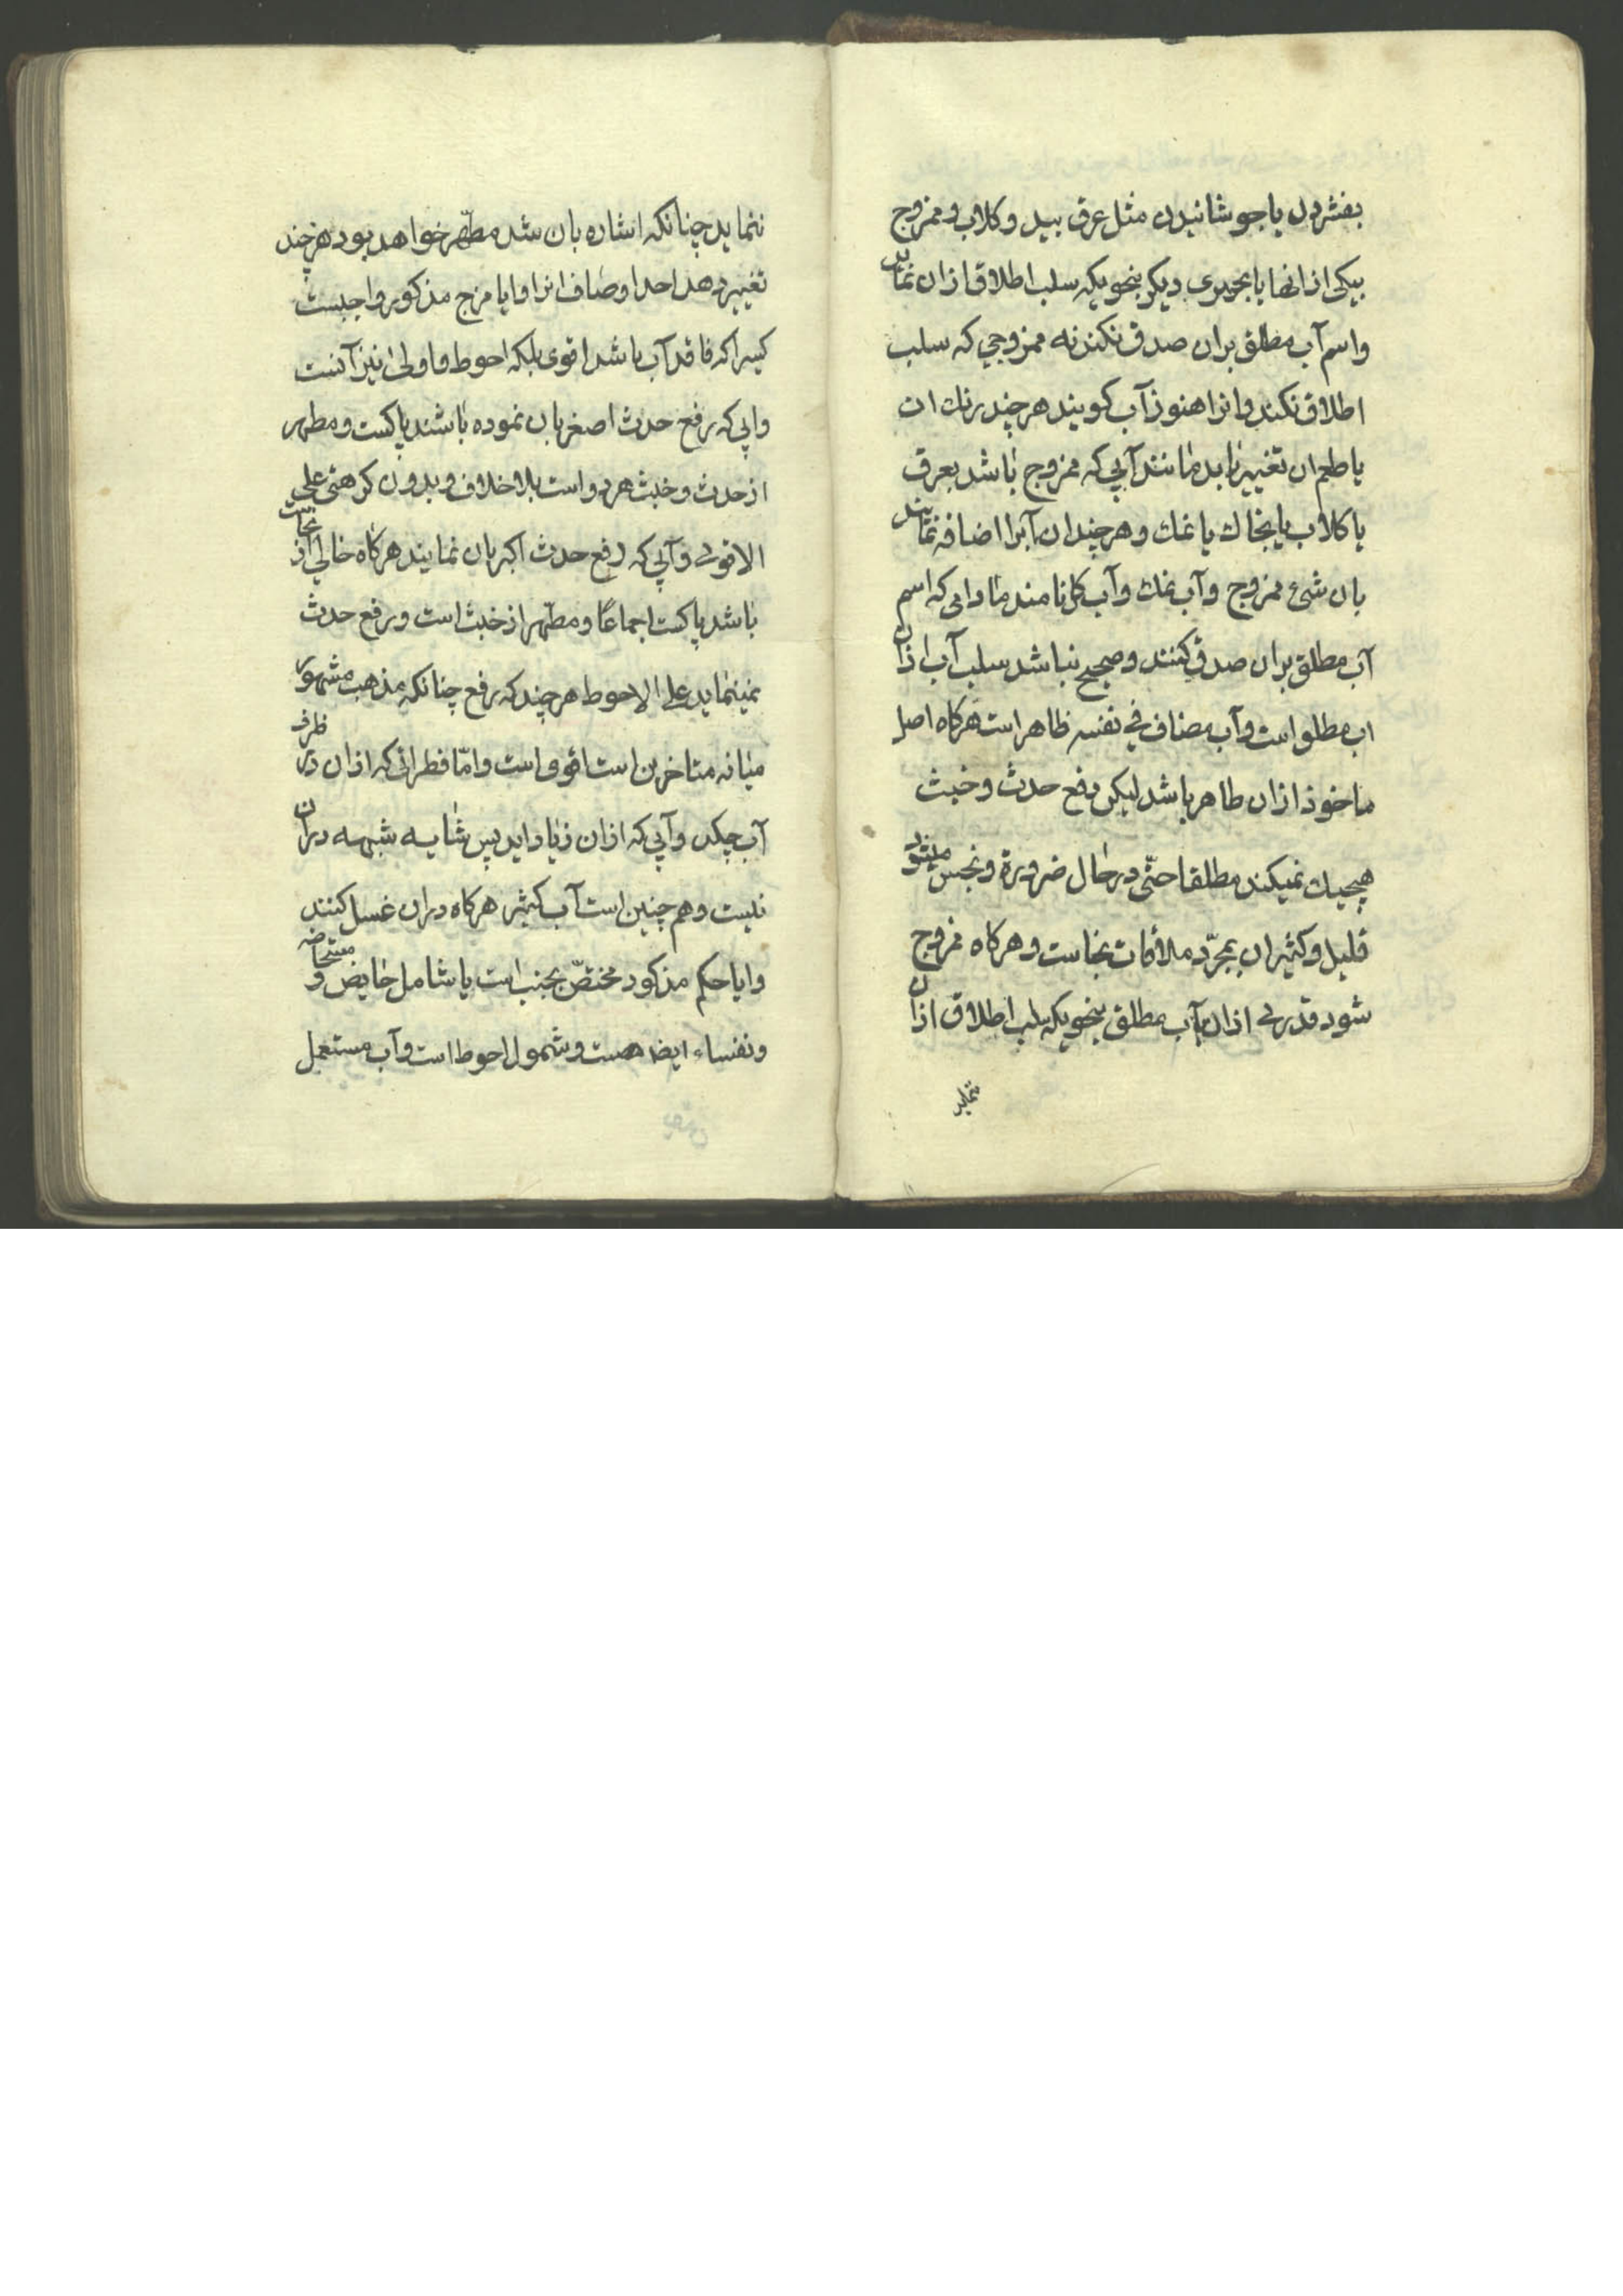 بفشردن یا جوشانیدن مثل عرق بید و کلاب و ممزوج
بیکی از انها یا بچیزی دیکر بنحویکه سلب اطلاق ازان نماید
و اسم آب مطلق بران صدق نکند نه ممزوجی که سلب
اطلاق نکند و انرا هنوز آب کویند هر چند رنك ان
یا طعم ان تغییر یابد مانند آبی که ممزوج باشد بعرق
یا کلاب یا بخاك یا نمك و هر چند ان آبرا اضافه نمایند
بان شئ ممزوج و آب نمك و آب کل نامند مادامی که اسم
آب مطلق بران صدق کنند و صحیح نباشد سلب آب ازان
اب مطلق است و آب مضاف فی نفسه طاهر است هرکاه اصل
ماخوذ ازان طاهر باشد لیکن رفع حدث و خبث
هیچیك نمیکند مطلقا حتّی در حال ضرورة و نجس میشود
قلیل و کثیر ان بمجرّد ملاقات نجاست و هرکاه ممزوج
شود قدری ازان بآب مطلق بنحویکه سلب اطلاق ازان
ننماید
ننماید چنانکه اشاره بان شد مطهّر خواهد بود هر چند
تغییر دهد احد اوصاف انرا و ایا مزج مذکور واجبست
کسیرا که فاقد آب باشد اقوی بلکه احوط و اولی نیز آنست
و ابی که رفع حدث اصغر بان نموده باشند پاکست و مطهر
از حدث و خبث هر دو است بلا خلاف و بدون کرهتی علی
الاقوی و آبی که رفع حدث اکبر بان نمایند هرکاه خالی از نجاست
باشد پاکست اجماعًا و مطهّر از خبث است و رفع حدث
نمینماید علی الاحوط هر چند که رفع چنانکه مذهب مشهور
میانه متاخرین است اقوی است و امّا قطراتی که ازان در ظرف
آب چکد و آبی که ازان زیاد اید پس شایبه شبهه دران
نیست و هم چنین است آب کثیر هرکاه دران غسل کنند
و ایا حکم مذکور مختصّ بجنب است یا شامل حایض و مستحاضه
و نفساء ایضا هست و شمول احوط است و آب مستعمل